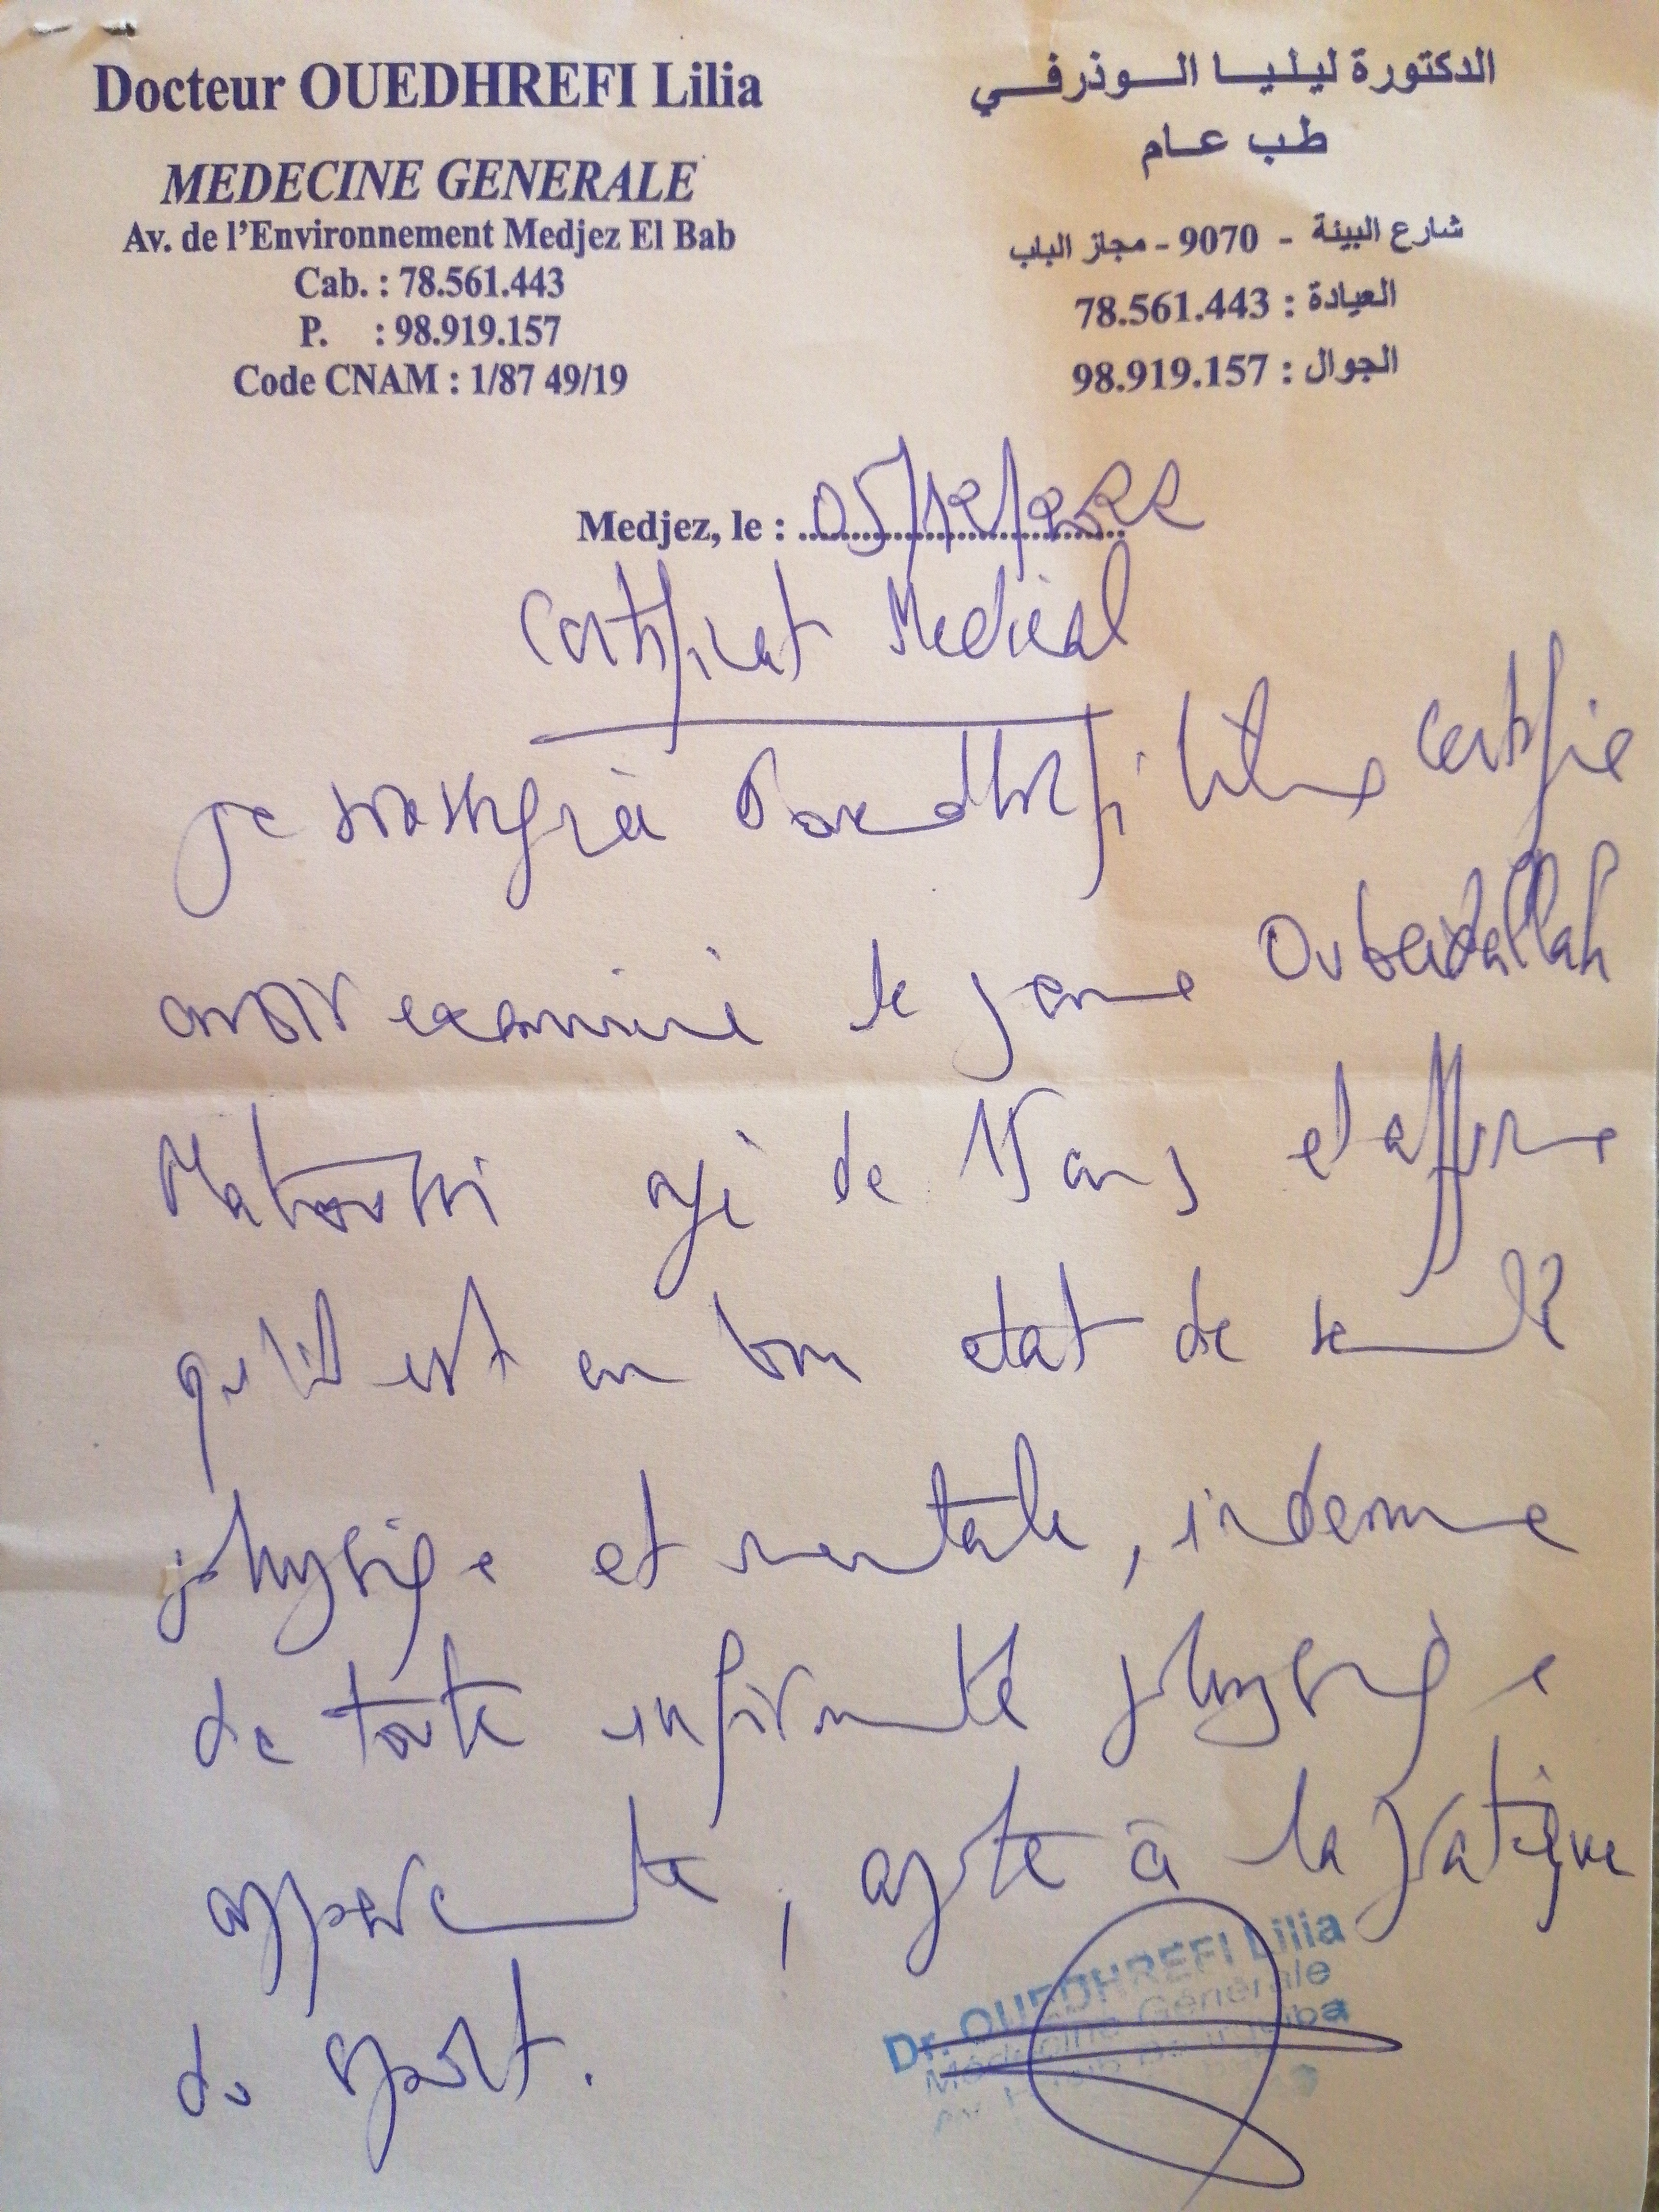 Docteur OUEDHREFI Lilia
MEDECINE GENERALE
Av. de l'Environnement Medjez El Bab
Cab. : 78.561.443
P. : 98.919.157
Code CNAM : 1/87 49/19
الدكتورة ليليا الوذرفي
طب عام
شارع البيئة - 9070 - مجاز الباب
العيادة : 78.561.443
الجوال : 98.919.157
Medjez, le : 05/12/2022
Certificat Medical
Je soussignée Ouedhrefi Lilia certifie
avoir examiné le jeune Oubeidallah
Matoussi agé de 15 ans et affirme
qu'il est en bon etat de santé
physique et mentale, indemne
de toute infirmité physique
apparente, apte à la pratique
du sport.
Dr. OUEDHREFI Lilia
Médecine Générale